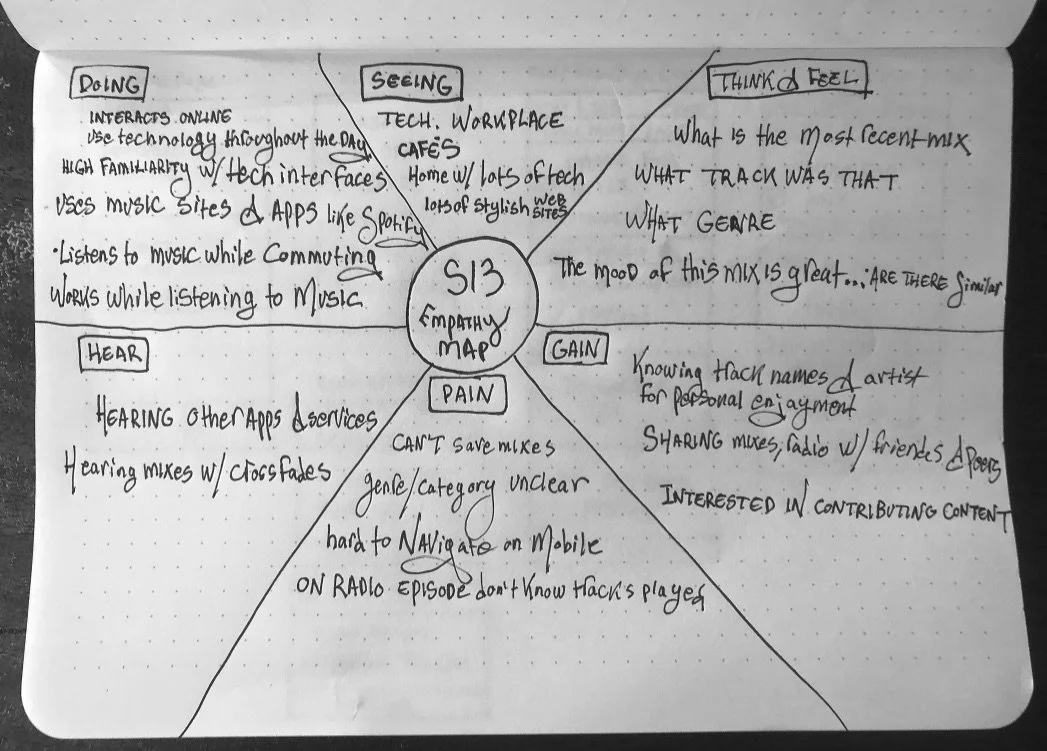 DOING
INTERACTS ONLINE
use technology throughout the DAY
HIGH FAMILIARITY w/ tech interfaces
USES MUSIC SITES & APPS LIKE Spotify
·Listens to music while Commuting
WORKS while listening to Music
SEEING
TECH. WORKPLACE
CAFÉS
Home w/ lots of tech
lots of stylish WEB SITES
THINK & FEEL
What is the most recent mix
WHAT TRACK WAS THAT
WHAT GENRE
The mood of this mix is great... ARE THERE Similar
S13
EMPATHY
MAP
HEAR
HEARING other Apps & services
Hearing mixes w/ crossfades
PAIN
CAN'T save mixes
genre/category unclear
hard to NAVigate on Mobile
ON RADIO EPISODE don't know track's played
GAIN
Knowing track names & artist
for personal enjayment
SHARING mixes, radio w/ friends & peers
INTERESTED IN CONTRIBUTING CONTENT